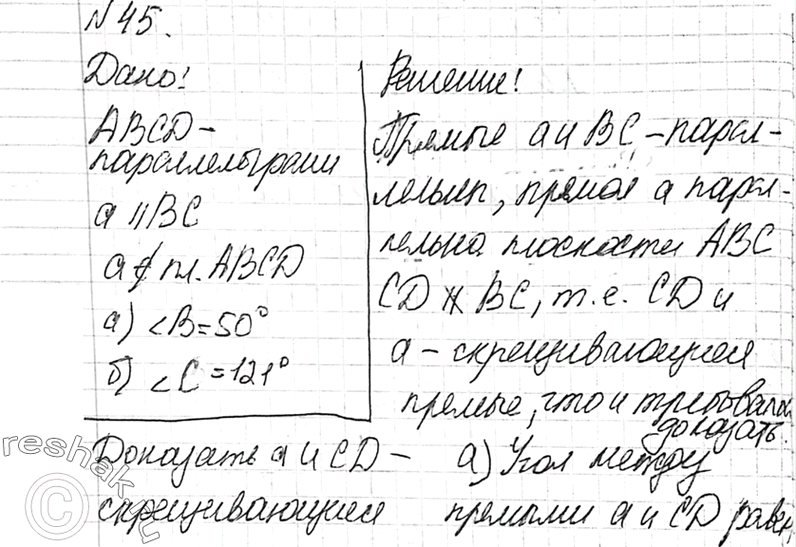 №45.
Дано!
ABCD-
параллелограмм
a ∥ BC
a ⊄ пл. ABCD
а) <B=50°
б) <C=121°
Доказать a и CD -
скрещивающиеся
Решение!
Прямые a и BC - парал-
лельны, прямая a парал-
лельна плоскости ABC
CD ∦ BC, т.е. CD и
a - скрещивающиеся
прямые, что и требовалось
доказать.
а) Угол между
прямыми a и CD равен
reshak.ru
©